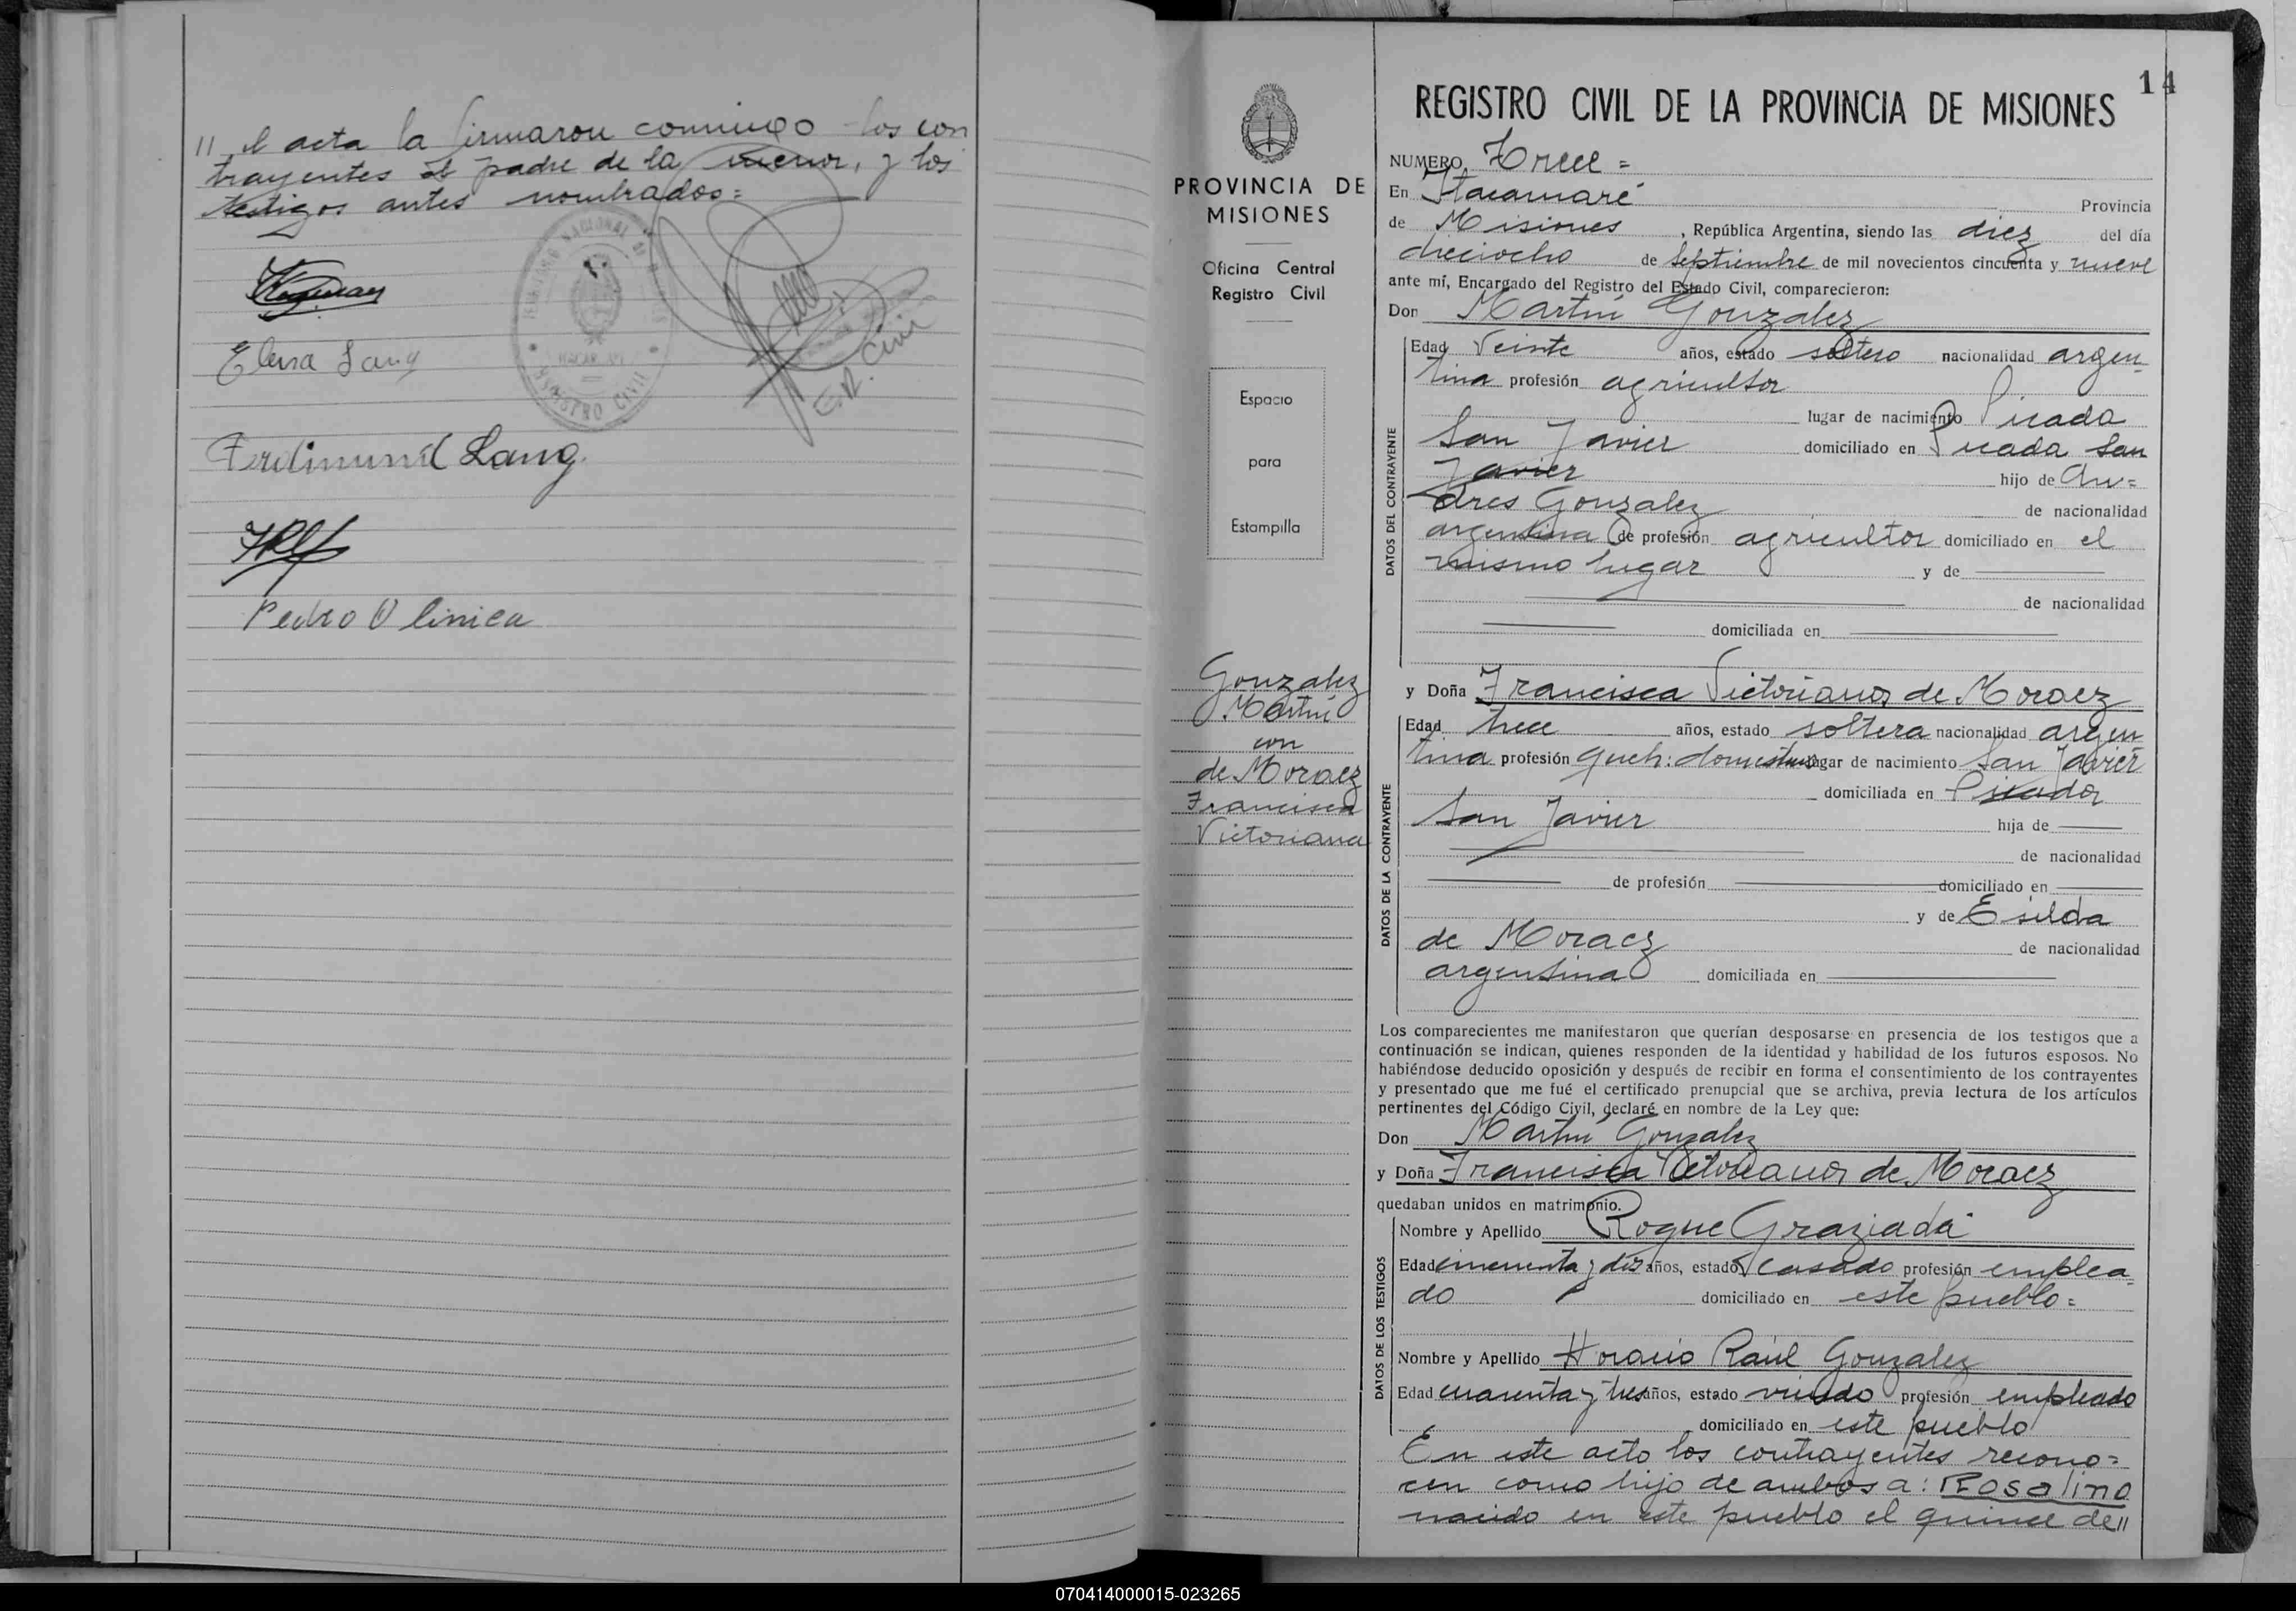 // el acta la firmaron conmigo los con
trayentes el padre de la menor, y los
testigos antes nombrados=
REGISTRO CIVIL
E.R. Civil
Elena Lang
Ferdinand Lang.
Pedro Olinica
14
PROVINCIA DE
MISIONES
Oficina Central
Registro Civil
Espacio
para
Estampilla
Gonzalez
Martín
con
de Moraez
Francisca
Victoriana
REGISTRO CIVIL DE LA PROVINCIA DE MISIONES
NUMERO Trece =
En Itacaruaré Provincia
de Misiones , República Argentina, siendo las diez del día
dieciocho de Septiembre de mil novecientos cincuenta y nueve
ante mí, Encargado del Registro del Estado Civil, comparecieron:
Don Martín Gonzalez
DATOS DEL CONTRAYENTE
Edad Veinte años, estado soltero nacionalidad argen-
tina profesión agricultor
lugar de nacimiento Picada
San Javier domiciliado en Picada San
Javier hijo de An=
dres Gonzalez de nacionalidad
argentina de profesión agricultor domiciliado en el
mismo lugar y de
de nacionalidad
domiciliada en
y Doña Francisca Victoriana de Moraez
DATOS DE LA CONTRAYENTE
Edad trece años, estado soltera nacionalidad argen
tina profesión queh: domesticos lugar de nacimiento San Javier
domiciliada en Picada
San Javier hija de
de nacionalidad
de profesión domiciliado en
y de Esilda
de Moraez de nacionalidad
argentina domiciliada en
Los comparecientes me manifestaron que querían desposarse en presencia de los testigos que a
continuación se indican, quienes responden de la identidad y habilidad de los futuros esposos. No
habiéndose deducido oposición y después de recibir en forma el consentimiento de los contrayentes
y presentado que me fué el certificado prenupcial que se archiva, previa lectura de los artículos
pertinentes del Código Civil, declaré en nombre de la Ley que:
Don Martín Gonzalez
y Doña Francisca Victoriana de Moraez
quedaban unidos en matrimonio.
DATOS DE LOS TESTIGOS
Nombre y Apellido Roque Graziada
Edad cincuenta y dos años, estado casado profesión emplea-
do domiciliado en este pueblo=
Nombre y Apellido Horacio Raúl Gonzalez
Edad cuarenta y tres años, estado viudo profesión empleado
domiciliado en este pueblo
En este acto los contrayentes recono=
cen como hijo de ambos a: Rosalino
nacido en este pueblo el quince de //
070414000015-023265